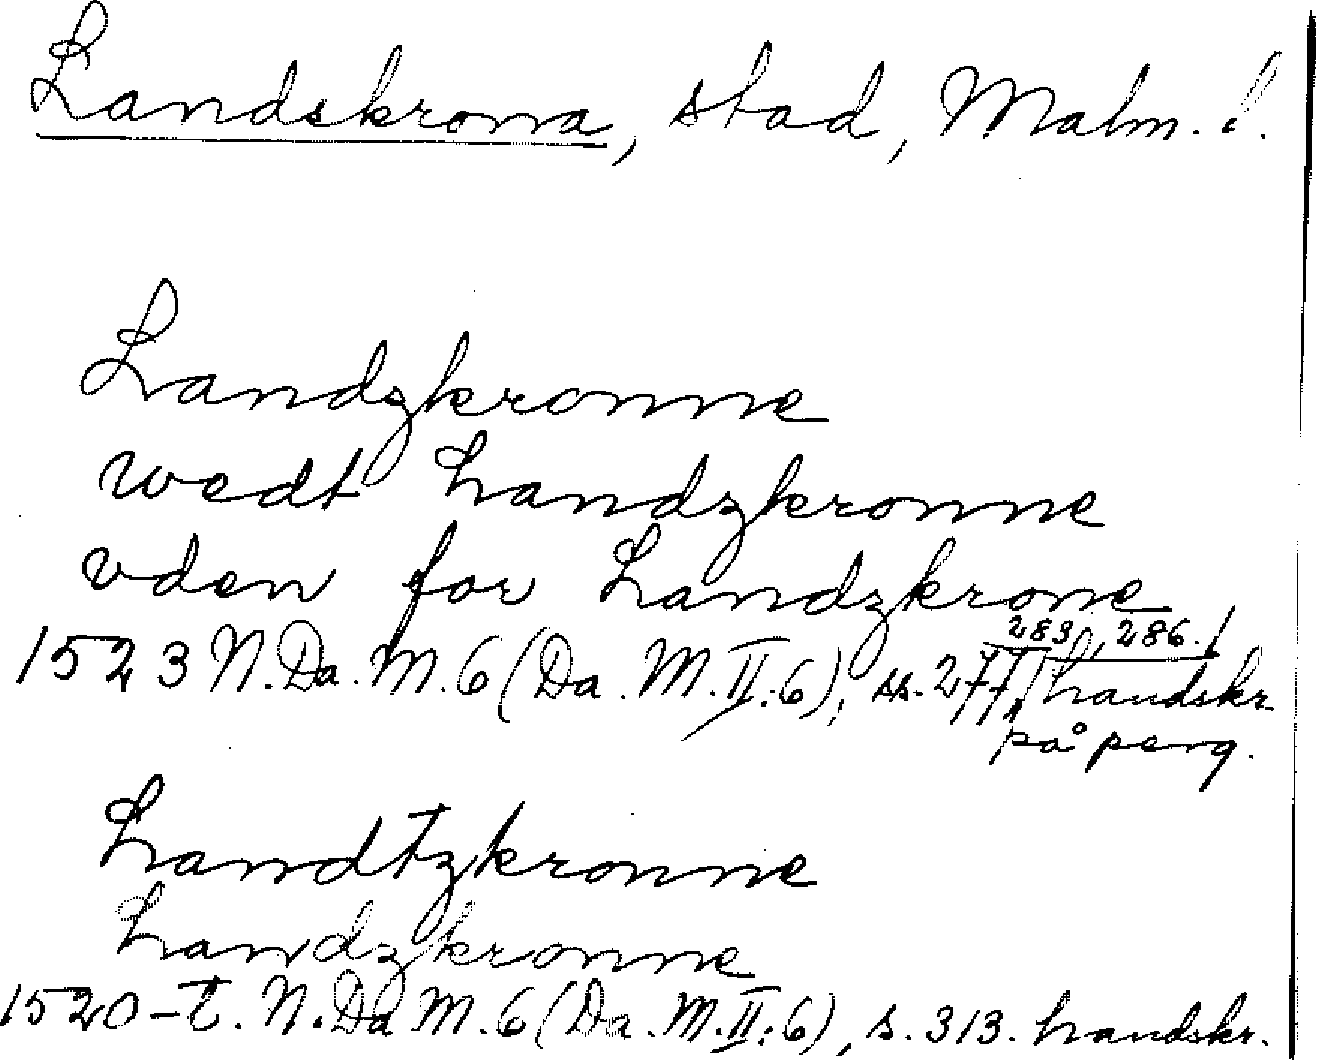 Landskrona, stad, Malm. l.
Landzkronne
wedt Landzkronne
vden for Landzkrone
1523 N. Da. M. 6 (Da. M. II: 6), ss. 277, 283, 286. handskr.
på perg.
Landtzkronne
Landzkronne
1520-t. N. Da M. 6 (Da. M. II: 6), s. 313. handskr.